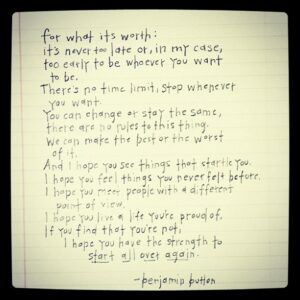 for what its worth:
it's never too late or, in my case,
too early to be whoever you want
to be.
There's no time limit, stop whenever
you want.
You can change or stay the same,
there are no rules to this thing.
We can make the best or the worst
of it.
And I hope you see things that startle you.
I hope you feel things you never felt before.
I hope you meet people with a different
point of view.
I hope you live a life you're proud of,
If you find that you're not,
I hope you have the strength to
start all over again.
-benjamin button